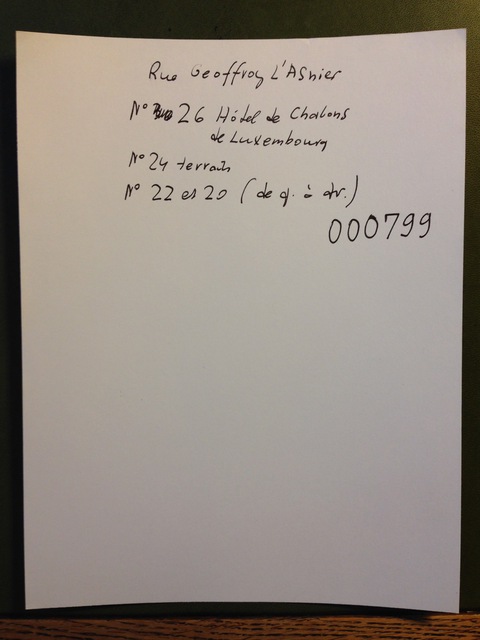 Rue Geoffroy L'Asnier
N° 26 Hôtel de Chalons
de Luxembourg
N° 24 terrain
N° 22 et 20 (de g. à dr.)
000799